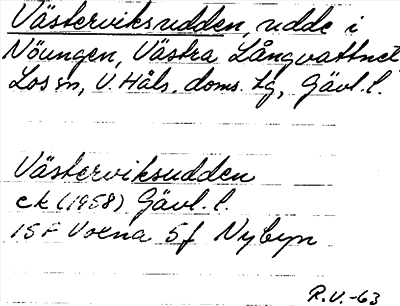 Västerviksudden, udde i
Nöungen, Västra Långvattnet
Los sn, V. Häls. doms. tg, Gävl. l.
Västerviksudden
ek (1958) Gävl. l.
15 F Voxna 5f Nybyn
R.V.-63